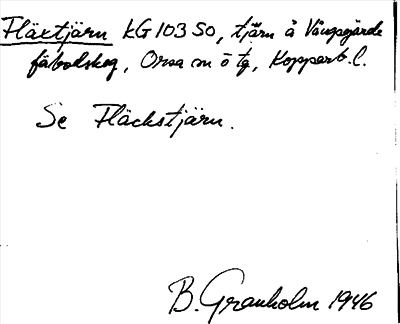 Fläxtjärn KG 103 SO, tjärn å Vångsgärde
fäbodskog, Orsa sn ö tg, Kopparb. l.
Se Fläckstjärn.
B. Granholm 1946